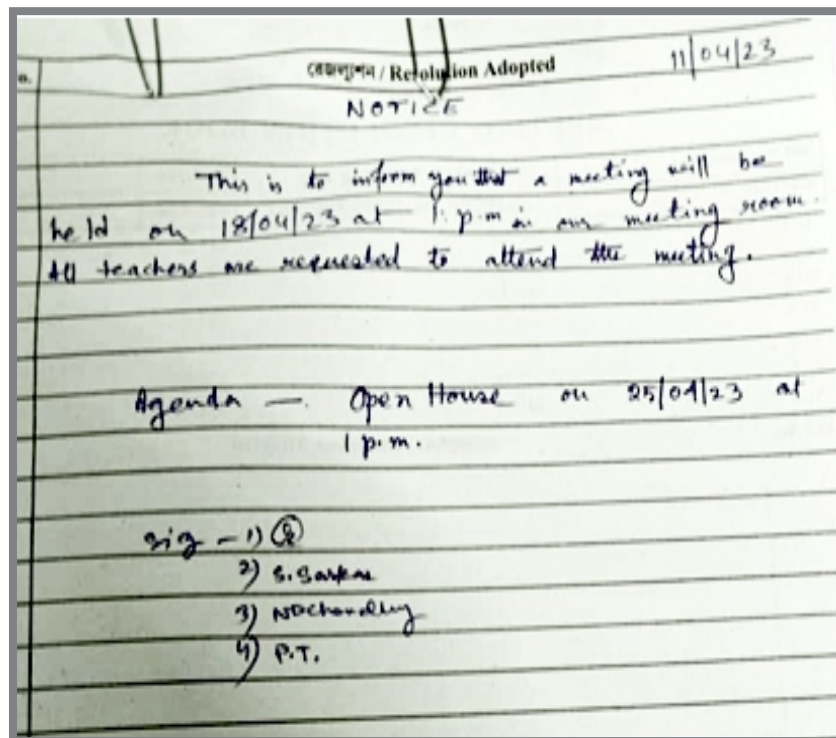 o.
রেজল্যুশন / Resolution Adopted
11/04/23
NOTICE
This is to inform you that a meeting will be
held on 18/04/23 at 1 p.m in our meeting room.
All teachers are requested to attend the meeting.
Agenda — Open House on 25/04/23 at
1 p.m.
sig – 1)
2) S. Sarkar
3) NDChowdhury
4) P.T.